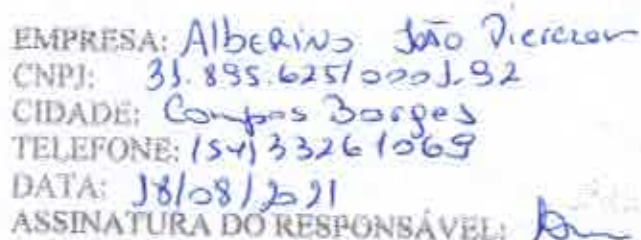 EMPRESA: Alberino João
CNPJ: 31.895.625/0001-92
CIDADE: Campos Borges
TELEFONE: (54) 33261069
DATA: 18/08/2021
ASSINATURA DO RESPONSÁVEL: